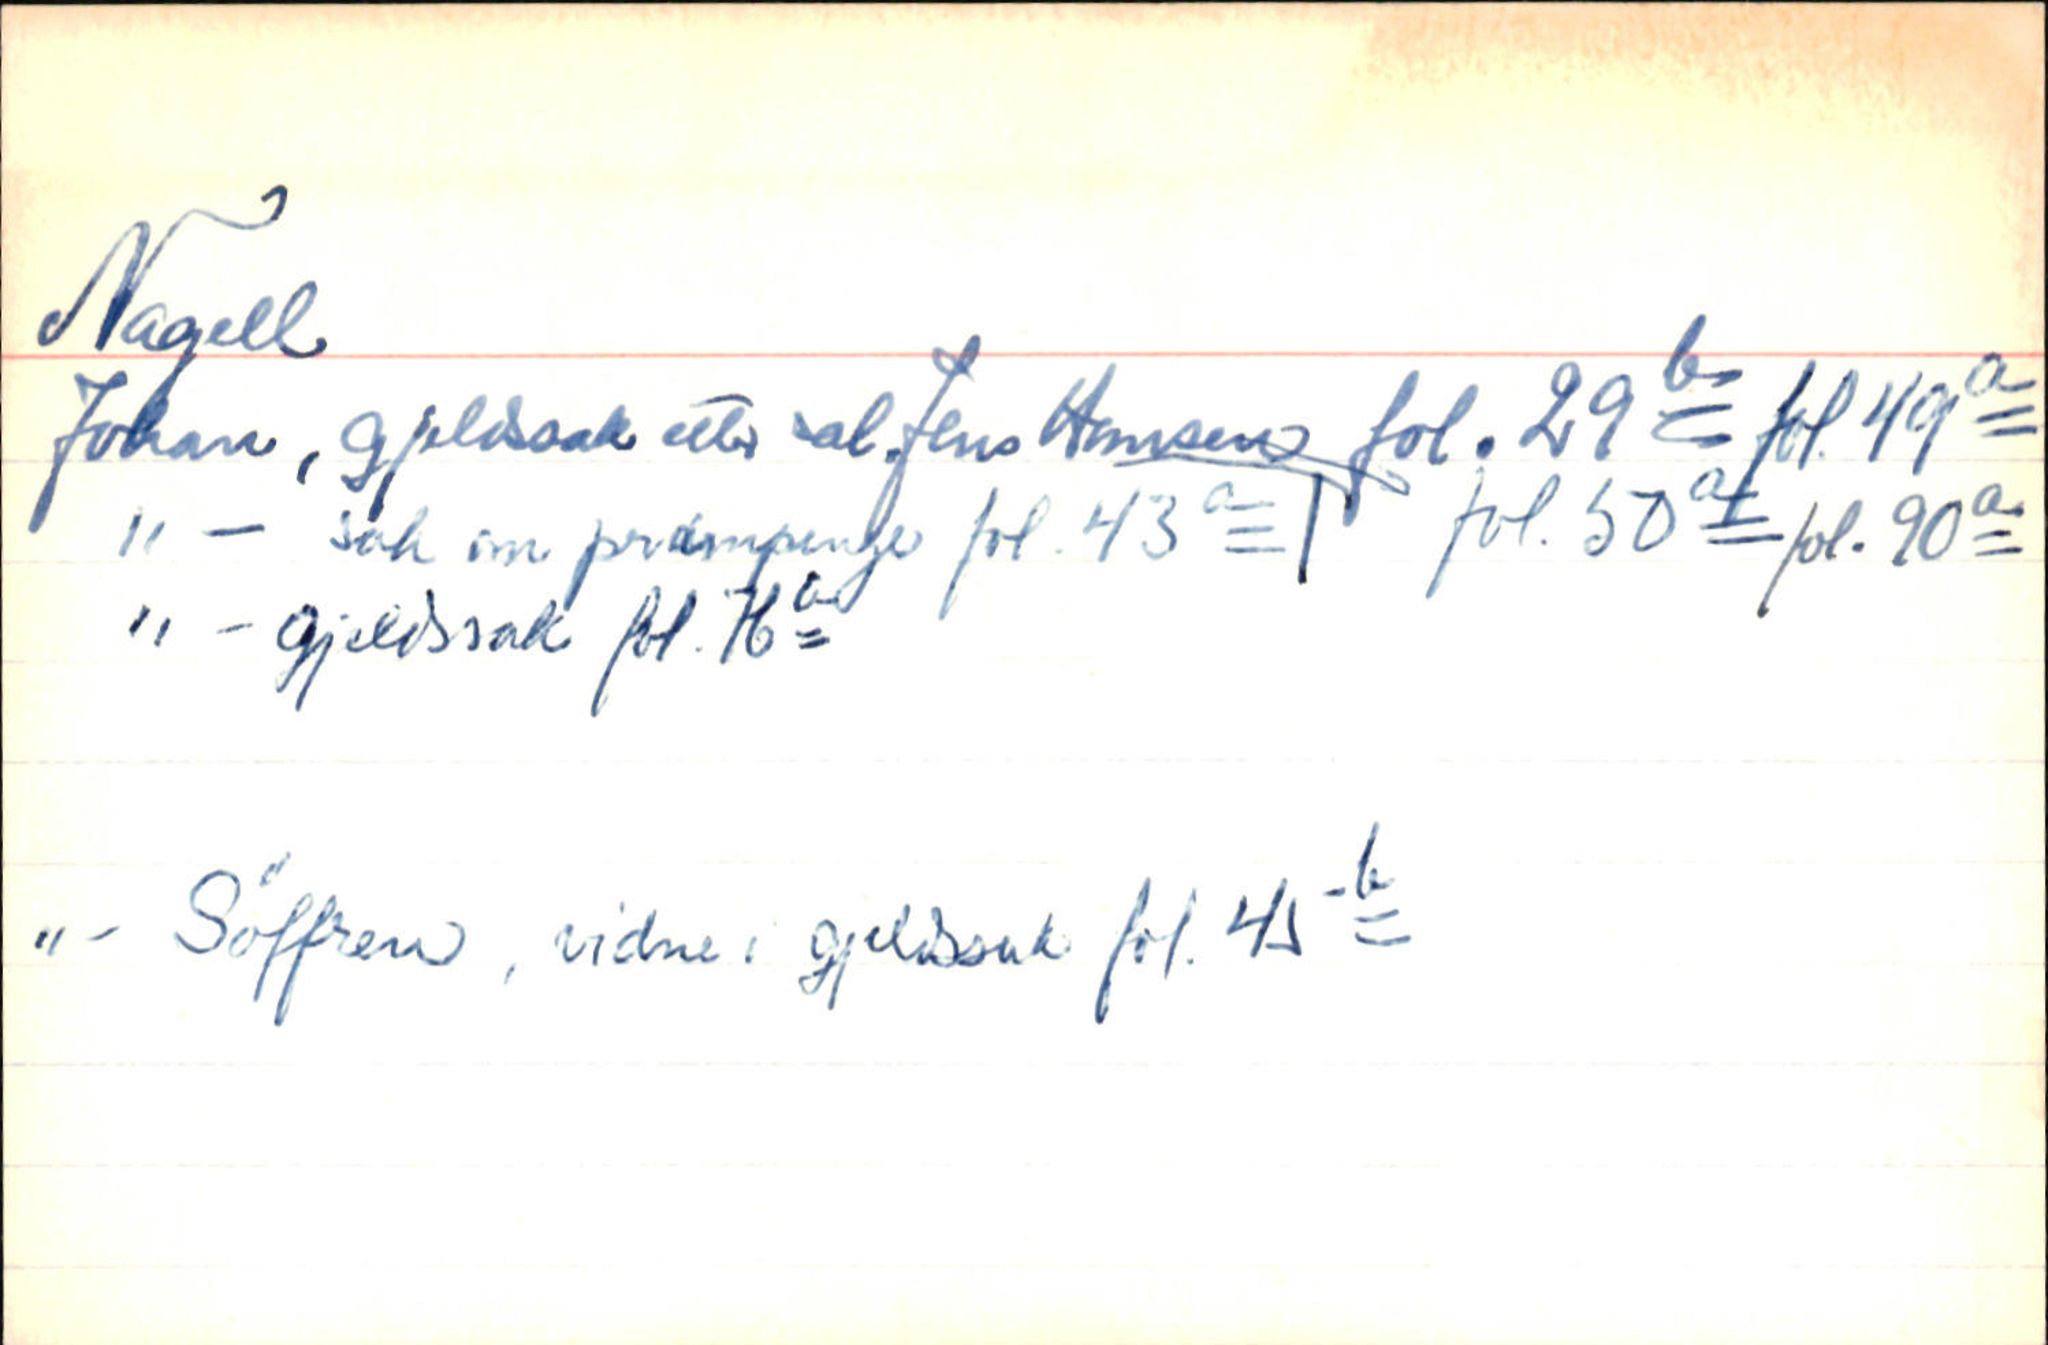 Nagell
Johan, gjeldssak etter sal. Jens Hansen fol. 29 b fol. 49 a
" — sak om prampenge fol. 43 a fol. 50 a fol. 90 a
" – gjeldssak fol. 76 a
" – Söffren, vidne i gjeldssak fol. 45 b